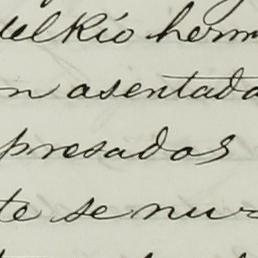 del Río herm
n asentada
presados
te se nu